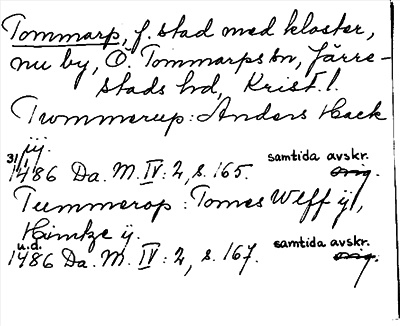 Tommarp, f. stad med kloster,
nu by, Ö. Tommarps sn, Järre-
stads hd, Krist. l.
Trommerup: Anders Hack
iij.
31/1 1486 Da. M. IV: 2, s. 165. samtida avskr. orig.
Tummerop: Tomes Wlff ij,
Hintze ij.
u.d. 1486 Da. M. IV: 2, s. 167. samtida avskr. orig.